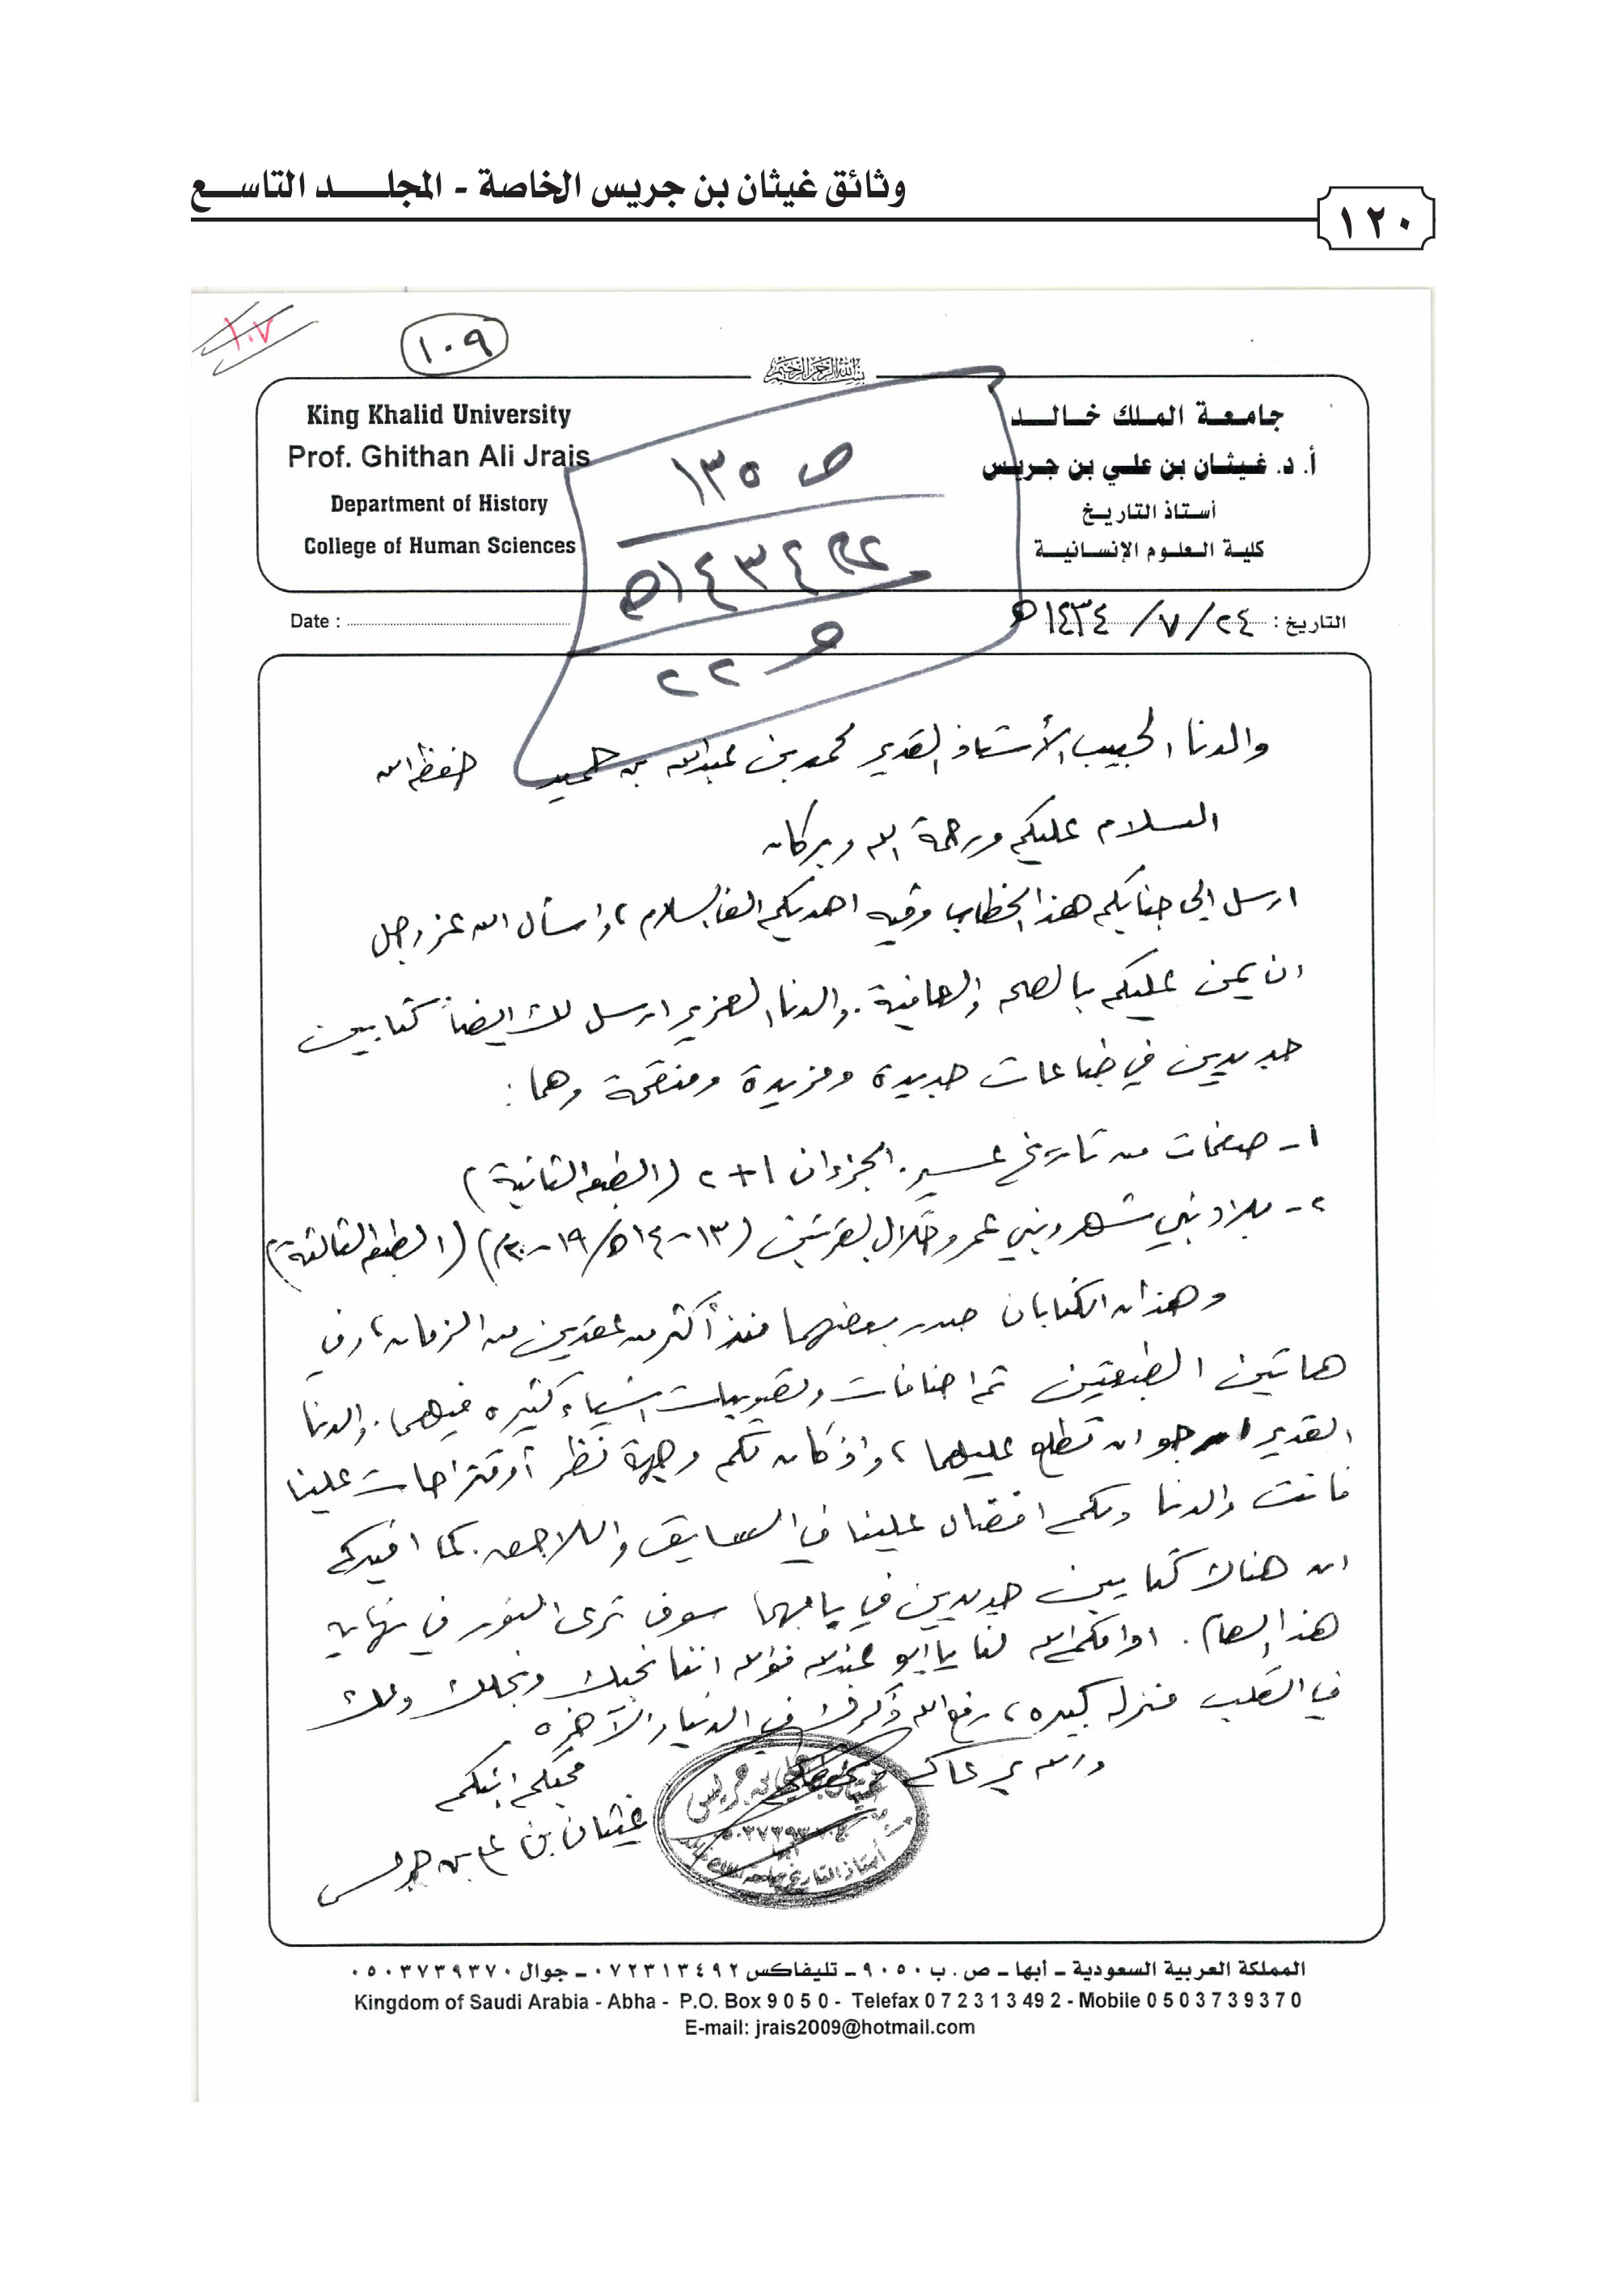 وثائق غيثان بن جريس الخاصة - المجلد التاسع
١٢٠
١٠٧
١٠٩
بسم الله الرحمن الرحيم
King Khalid University
Prof. Ghithan Ali Jrais
Department of History
College of Human Sciences
جامعة الملك خالد
أ. د. غيثان بن علي بن جريس
أستاذ التاريخ
كلية العلوم الإنسانية
ص ١٣٥
١٤٣٤هـ
٢٢
Date :
التاريخ : ٢٤ / ٧ / ١٤٣٤هـ
والدنا الحبيب الأستاذ القدير محمد بن عبدالله بن حميد حفظه الله
السلام عليكم ورحمة الله وبركاته
ارسل الى جنابكم هذا الخطاب وفيه اهديكم الف السلام، واسأل الله عز وجل
ان يمن عليكم بالصحه والعافية. والدنا العزيز ارسل لك ايضاً كتابين
جديدين في طباعات جديدة ومزيدة ومنقحة وهما:
١- صفحات من تاريخ عسير. الجزءان ١+٢ (الطبعه الثانية)
٢- بلاد بني شهر وبني عمرو خلال القرنين (١٣-١٤هـ/١٩-٢٠م) (الطبعه الثالثة)
وهذان الكتابان صدر بعضهما منذ أكثر من عقدين من الزمان، وفي
هاتين الطبعتين تم اضافات وتصويبات اشياء كثيره فيهما. والدنا
القدير ارجو ان تطلع عليهما، واذ كان لكم وجهة نظر أو قتراحات علينا
فانت والدنا ولكم افضال علينا في السابق واللاحق. كما افيدكم
ان هناك كتابين جديدين في بابهما سوف ترى النور في نهايه
هذا العام. ادامكم الله لنا يا ابو عبدالله فوالله اننا نحبك ونجلك ولك
في القلب منزله كبيره، رفع الله ذكرك في الدنيا والآخره
والله يرعاكم ويحفظكم
محبكم ابنكم
غيثان بن علي بن جريس
المملكة العربية السعودية - أبها - ص . ب ٩٠٥٠ - تليفاكس ٠٧٢٣١٣٤٩٢ - جوال ٠٥٠٣٧٣٩٣٧٠
Kingdom of Saudi Arabia - Abha - P.O. Box 9 0 5 0 - Telefax 0 7 2 3 1 3 49 2 - Mobile 0 5 0 3 7 3 9 3 7 0
E-mail: jrais2009@hotmail.com